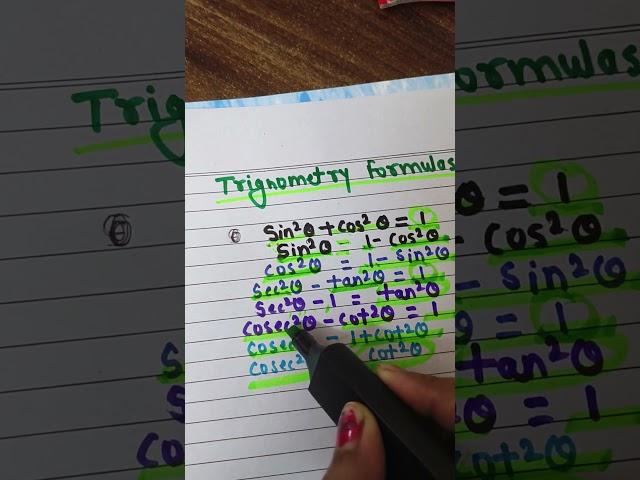 Trignometry Formulas
Sin²θ + cos²θ = 1
Sin²θ = 1 - cos²θ
cos²θ = 1 - sin²θ
sec²θ - tan²θ = 1
sec²θ - 1 = tan²θ
cosec²θ - cot²θ = 1
cosec = 1 + cot²θ
cosec² cot²θ